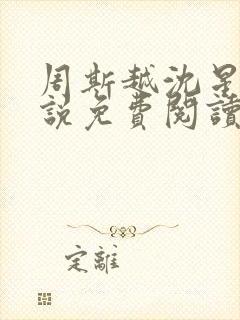 周斯越沈星
說免費閱讀
定離